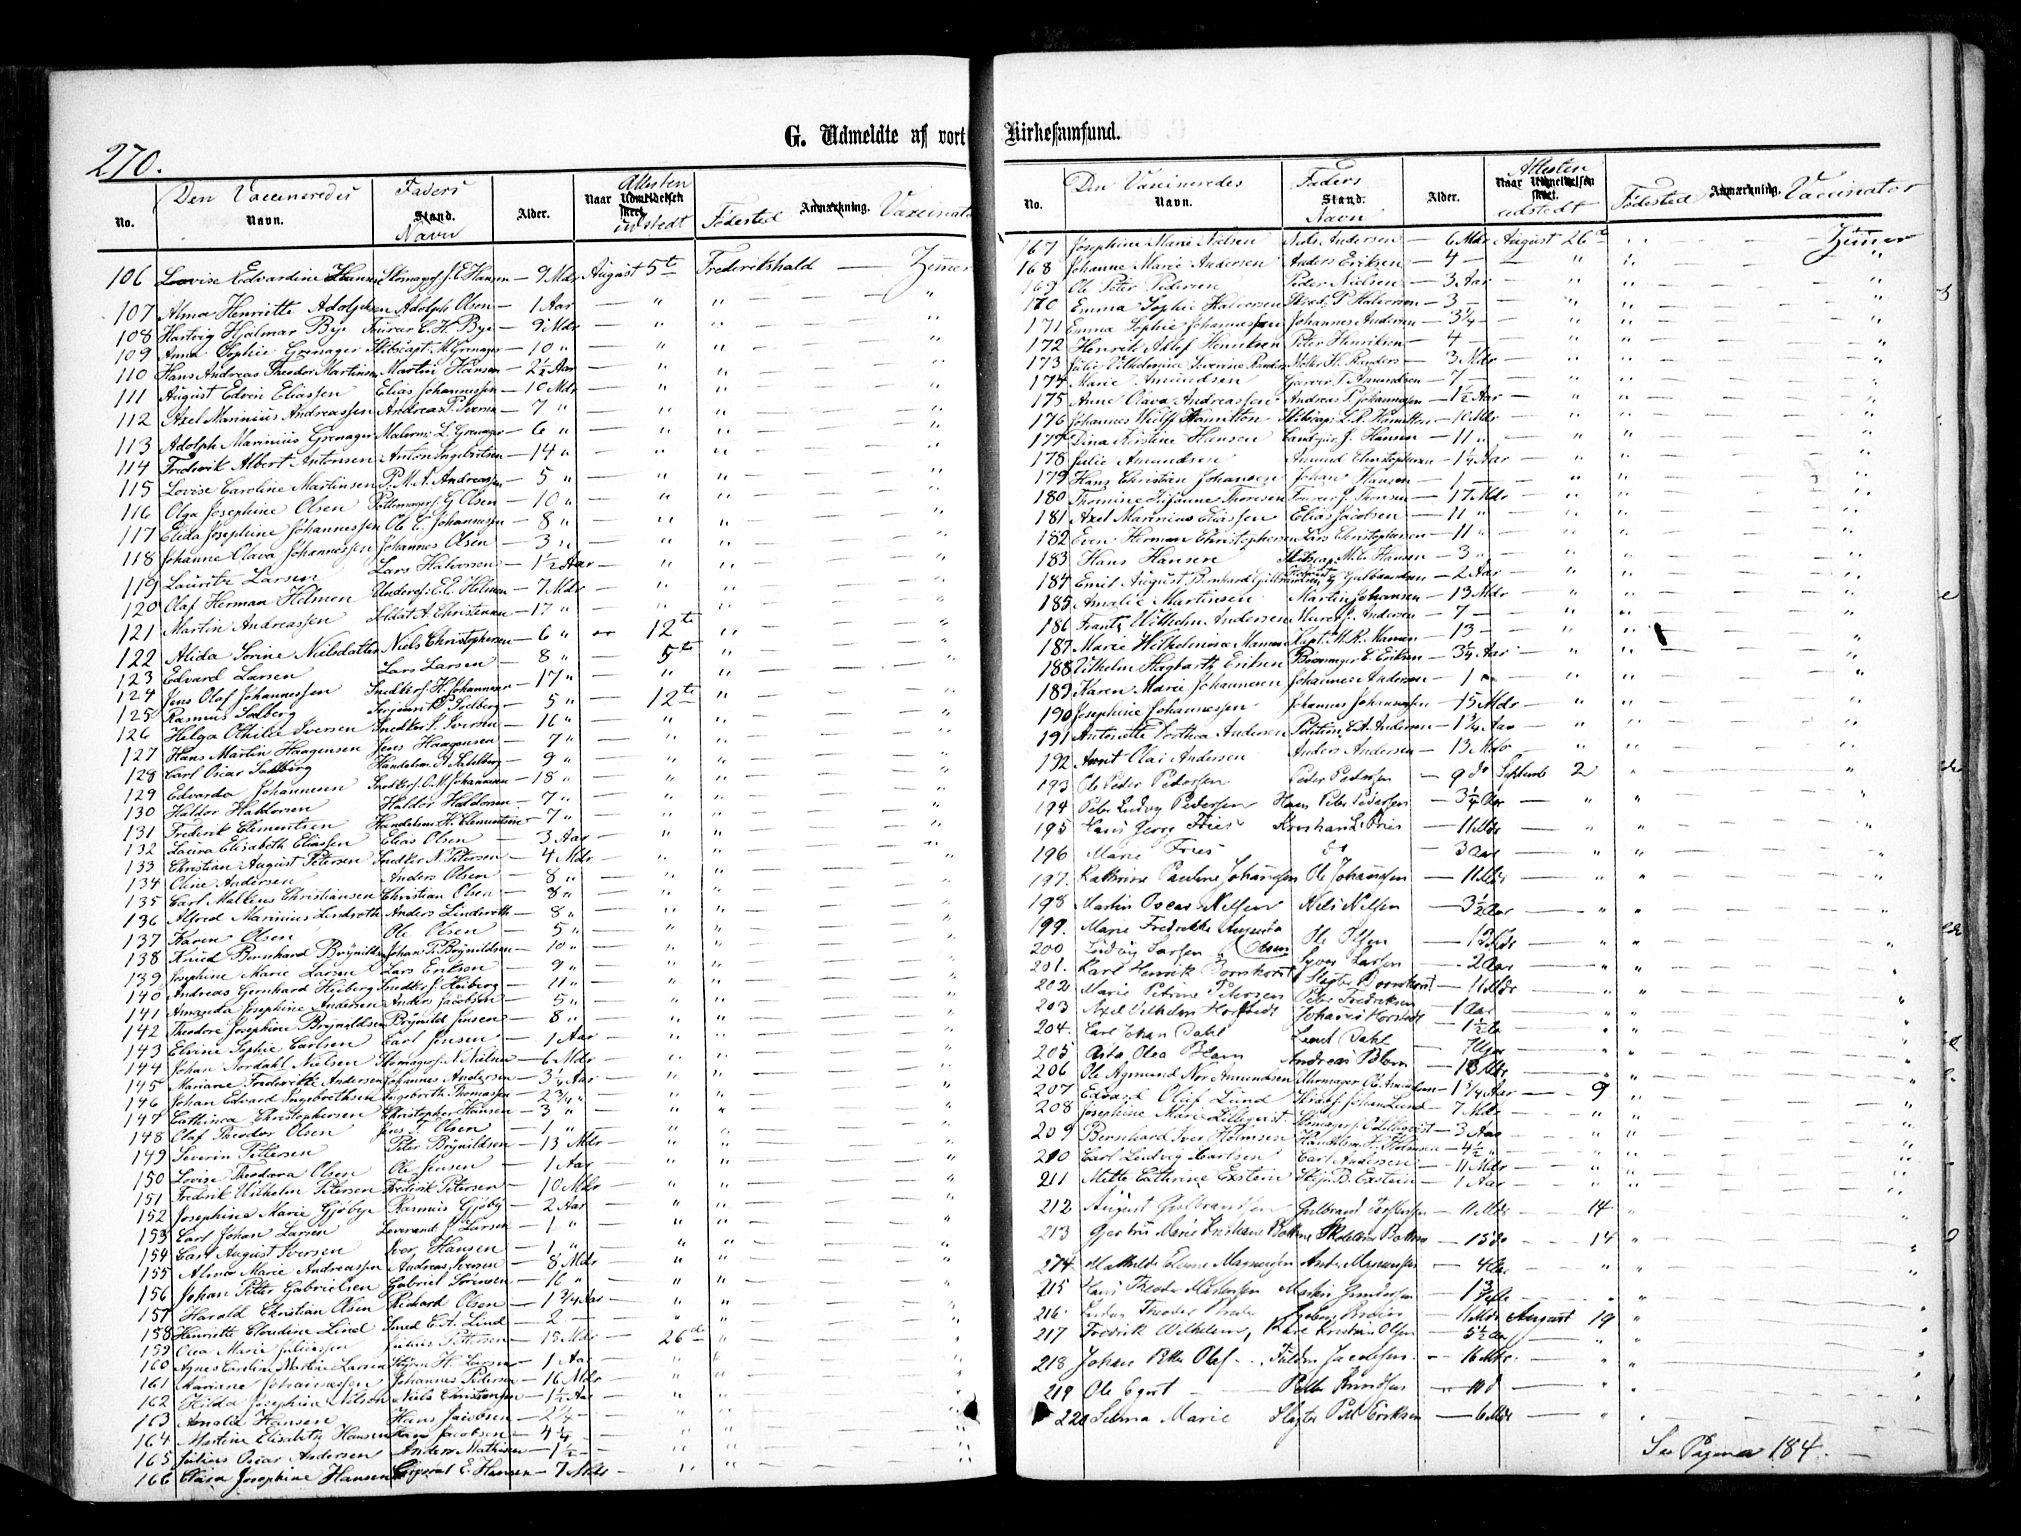 270.
G. Udmeldte af vort Kirkesamfund.
No. Den Vaccineredes Navn. Faders Stand. Navn Alder. Naar Attesten udstedt Fødested Anmærkning. Vaccinator
106 Lovise Edvardine Hansen Skomagersv. J. E. Hansen — 9 Mdr August 5te Frederikshald — Zimer
107 Alma Henriette Adolphsen Adolph Olsen — 1 Aar — " " — "
108 Hartvig Hjalmar Bye C. H. Bye — 9 Mdr — " " — "
109 Anna Sophie Grenager Skibscapt. M. Grenager — 10 " — " " — "
110 Hans Andreas Theodor Martinsen Martin Hansen — 2½ Aar — " " — "
111 August Edvin Eliassen Elias Johannessen — 10 Mdr — " " — "
112 Axel Marinius Andreassen Andreas P. Iversen — 7 " — " " — "
113 Adolph Marinius Grenager Malerm. L. Grenager — 6 " — " " — "
114 Frederik Albert Antonsen Anton Ingebretsen — 14 " — " " — "
115 Lovise Caroline Martinsen P. M. A. Andreassen — 5 " — " " — "
116 Olga Josephine Olsen Pottemagersv. G. Olsen — 10 " — " " — "
117 Elida Josephine Johannessen Ole E. Johannessen — 8 " — " " — "
118 Johanne Olava Johannessen Johannes Olsen — 3 " — " " — "
119 Lauritz Larsen Lars Halvorsen — 1½ Aar — " " — "
120 Olaf Herman Helmen Undersv. E. E. Helmen — 7 Mdr — " " — "
121 Martin Andreassen Soldat A. Christensen — 17 " — " " — "
122 Alida Sorine Nielsdatter Niels Christophersen — 6 " — 12te " — "
123 Edvard Larsen Lars Larsen — 8 " — 5te " — "
124 Jens Olaf Johannessen Snedkersv. H. Johannesen — 17 " — " " — "
125 Rasmus Solberg Serjeant P. Solberg — 5 " — 12te " — "
126 Helga Othilie Iversen Snedker J. Iversen — 16 " — " " — "
127 Hans Martin Haagensen Jens Haagensen — 7 " — " " — "
128 Carl Oscar Sahlberg Handelsm. A. Sahlberg — 9 " — " " — "
129 Edvarda Johannesen Snedkersv. O. M. Johannesen — 18 " — " " — "
130 Haldor Haldorsen Haldor Haldorsen — 7 " — " " — "
131 Frederik Clementsen Handelsm. H. Clementsen — 7 " — " " — "
132 Laura Elisabeth Eliassen Elias Olsen — 3 Aar — " " — "
133 Christian August Petersen Snedker N. Petersen — 4 Mdr — " " — "
134 Oline Andersen Anders Olsen — 8 " — " " — "
135 Carl Matheus Christiansen Christian Olsen — 8 " — " " — "
136 Alfred Marinius Linderoth Anders Linderoth — 8 " — " " — "
137 Karen Olsen Ole Olsen — 5 " — " " — "
138 Knud Bernhard Brynildsen Johan P. Brynildsen — 10 " — " " — "
139 Josephine Marie Larsen Lars Eriksen — 9 " — " " — "
140 Andreas Gernhard Heiberg Snedkersv. J. Heiberg — 11 " — " " — "
141 Amanda Josephine Andersen Anders Jacobsen — 5 " — " " — "
142 Theodore Josephine Brynildsen Brynild Jensen — 8 " — " " — "
143 Elvine Sophie Carlsen Carl Jensen — 1 Aar — " " — "
144 Johan Nordahl Nielsen Skomagersv. N. Nielsen — 6 Mdr — " " — "
145 Mariane Frederikke Andersen Johannes Andersen — 3¼ Aar — " " — "
146 Johan Edvard Ingebrethsen Ingebreth Thomassen — 2¾ " — " " — "
147 Cathinca Christophersen Christopher Hansen — 3 " — " " — "
148 Olaf Theodor Olsen Jens T. Olsen — 1 " — " " — "
149 Severin Pettersen Peter Brynildsen — 13 Mdr — " " — "
150 Lovise Theodora Olsen Ole Jensen — 1 Aar — " " — "
151 Fredrik Wilhelm Petersen Frederik Petersen — 10 Mdr — " " — "
152 Josephine Marie Gjøbye Rasmus Gjøby — 2 Aar — " " — "
153 Carl Johan Larsen Leverandr. J. Larsen — 1 " — " " — "
154 Carl August Iversen Iver Hansen — 1 " — " " — "
155 Alma Marie Andreassen Andreas Iversen — 8 Mdr — " " — "
156 Johan Peter Gabrielsen Gabriel Sørensen — 16 " — " " — "
157 Harald Christian Olsen Richard Olsen — 1¾ Aar — " " — "
158 Henriette Claudine Lind Smed E. A. Lind — 2 — " " — "
159 Olea Marie Juliussen Julius Pettersen — 15 Mdr — 26de " — "
160 Agnes Caroline Martine Larsen Styrm. H. Larsen — 1 Aar — " " — "
161 Mariane Johannessen Johannes Pedersen — 16 Mdr — " " — "
162 Hilda Josephine Nilsen Niels Christiansen — 1½ Aar — " " — "
163 Amalie Hansen Hans Jacobsen — 2¼ — " " — "
164 Martine Elisabeth Hansen Hans Jacobsen — 4¼ — " " — "
165 Julius Oscar Andersen Anders Mathisen — 1½ — " " — "
166 Clara Josephine Hansen Corporal E. Hansen — 7 Mdr — " " — "
No. Den Vaccineredes Navn. Faders Stand. Navn Alder. Naar Attesten udstedt Fødested Anmærkning. Vaccinator
167 Josephine Marie Nielsen Nils Andersen — 6 Mdr August 26de " — Zimer
168 Johanne Marie Andersen Anders Eriksen — 4 — " " — "
169 Ole Peter Pedersen Peder Nielsen — 3 Aar — " " — "
170 Emma Sophie Halvorsen P. Halvorsen — 3 — " " — "
171 Emma Sophie Johannessen Johannes Andersen — 3¼ — " " — "
172 Henrik Adlef Henriksen Peter Henriksen — 4 — " " — "
173 Julie Vilhelmine Severine Randers H. Randers — 3 Mdr — " " — "
174 Marie Amundsen Garver T. Amundsen — 7 — " " — "
175 Anne Olava Andreassen Andreas P. Johannesen — 1½ Aar — " " — "
176 Johannes Wulf Hamilton Skibscap. L. R. Hamilton — 10 Mdr — " " — "
177 Dina Kirstine Hansen J. Hansen — 11 " — " " — "
178 Julie Amundsen Amund Christophersen — 1¼ Aar — " " — "
179 Hans Christian Johansen Johan Hansen — 1 — " " — "
180 Thomine Susanne Thoresen J. Thoresen — 17 Mdr — " " — "
181 Axel Marinius Eliassen Elias Jacobsen — 11 " — " " — "
182 Even Herman Christophersen Lars Christophersen — 11 " — " " — "
183 Hans Hansen Skibscap. M. E. Hansen — 3 " — " " — "
184 Emil August Bernhard Gulbrandsen G. Gulbrandsen — 2 Aar — " " — "
185 Amalie Martinsen Martin Johansen — 13 Mdr — " " — "
186 Frantz Wilhelm Andersen Murer J. Andersen — 7 — " " — "
187 Marie Wilhelmina Hansen Capt. M. R. Hansen — 13 — " " — "
188 Vilhelm Hagbarth Eriksen Bøssemager E. Eriksen — 3¾ Aar — " " — "
189 Karen Marie Johannesen Johannes Andersen — 1 " — " " — "
190 Josephine Johannessen Johannes Johannessen — 15 Mdr — " " — "
191 Antonette Dorthea Andersen Politien. C. A. Andersen — 1¼ Aar — " " — "
192 Olai Andersen Anders Andersen — 13 Mdr — " " — "
193 Ole Peder Pedersen Peder Pedersen — 9 do Septemb 2 " — "
194 Peter Ludvig Pedersen Hans Peter Pedersen — 3¼ Aar — " " — "
195 Hans Georg Fries Kristian L. Fries — 11 Mdr — " " — "
196 Marie Fries do — 3 Aar — " " — "
197. Kathrine Pauline Johansen Ole Johansen — 11 Mdr — " " — "
198 Martin Oscar Nilsen Nils Nilsen — 3½ Aar — " " — "
199. Marie Fredrikke Augusta Olsen Ole Olsen — " " — "
200 Ludvig Larsen Syver Larsen — 2 Aar — " " — "
201. Karl Henrik Bornhorst Slagter Bornhorst — 11 Mdr — " " — "
202 Marie Petrine Petersen Peter Fredriksen — " " — "
203 Axel Vilhelm Horstvedt Johannes Horstvedt 1 Aar — " " — "
204. Carl Johan Dahl Dahl — 1½ Aar — " " — "
205 Olea Blom Andreas Blom — " " — "
206 Ole Agmund Nor Amundsen Uhrmager Ol. Amundsen — 13 Mdr — " " — "
207 Edvard Olaf Lund Johan Lund — 1¾ Aar — 9 " — "
208 Josephine Marie Lilleqvist Skomagersv. O. Lilleqvist — 7 Mdr — " " — "
209 Bernhard Iver Holmsen Handelsm. H. Holmsen — 3 Aar — " " — "
210 Carl Ludvig Carlsen Carl Andersen — 4½ " — " " — "
211 Mette Cathrine Exstein B. Exstein — 11 Mdr — 1 Aar — " " — "
212 August Gulbrandsen Gulbrand — 11 Mdr — 14 " — "
213 Gjertru Marie Kristiane — 15 do — 14 " — "
214 Mathilde Elene Magnussen Magnussen — 4 Aar — " " — "
215 Hans Theodor Martinsen Martin Gundersen — 1¾ Aar — " " — "
216. Ludvig Theodor — 11 Mdr August 19 " — "
217 Fredrik Wilhelm, Kare Kristian Olsen — 5½ Aar — " " — "
218 Johan Peter Olaf Jacobsen — 16 Mdr — " " — "
219 Ole Egert — Peter Knudsen — 10 d — " " — "
220 Selma Marie Slagter Pet. Eriksen — 6 Mdr — " "
Se Pagina 184. —